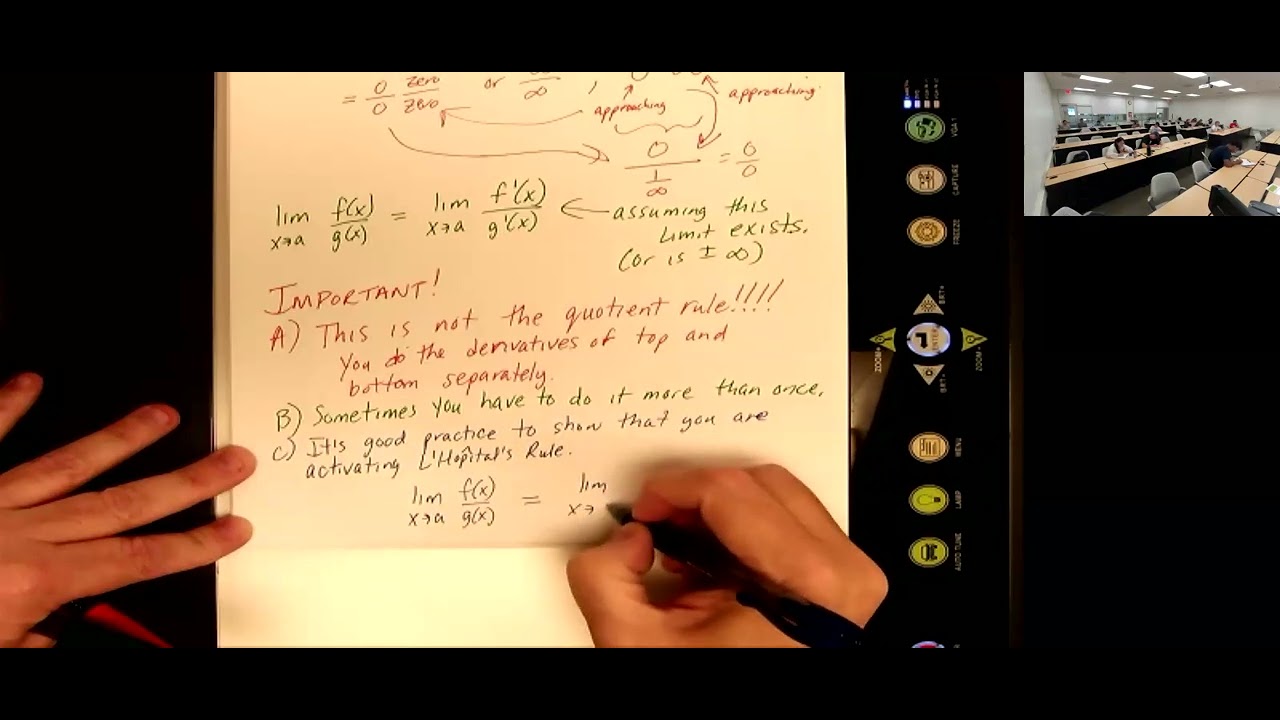 = 0/0 zero/zero or ∞ , 0
approaching approaching
0/(1/∞) = 0/0
lim x→a f(x)/g(x) = lim x→a f'(x)/g'(x) ← assuming this
limit exists.
(or is ± ∞)
IMPORTANT!
A) This is not the quotient rule!!!!
You do the derivatives of top and
bottom separately.
B) Sometimes you have to do it more than once.
C) It's good practice to show that you are
activating L'Hôpital's Rule.
lim x→a f(x)/g(x) = lim x→
VGA 1
CAPTURE
FREEZE
BRT+
ZOOM- ENTER ZOOM+
BRT-
MENU
LAMP
AUTO TUNE